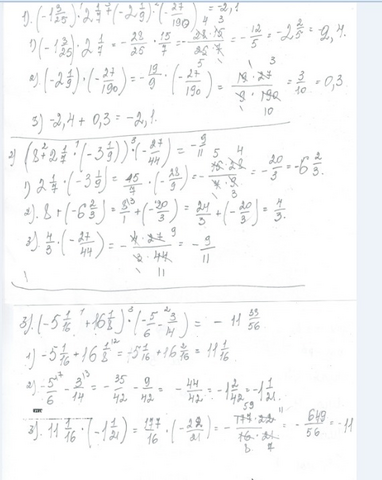 1). (-1 3/25) · 2 1/7 + (-2 1/9) · (-27/190) = -2,1
1) (-1 3/25) · 2 1/7 = -28/25 · 15/7 = -28·15/25·7 = -12/5 = -2 2/5 = -2,4.
2) (-2 1/9) · (-27/190) = -19/9 · (-27/190) = 19·27/9·190 = 3/10 = 0,3.
3) -2,4 + 0,3 = -2,1.
2) (8 + 2 1/7 · (-3 1/9)) · (-27/44) = -9/11
1) 2 1/7 · (-3 1/9) = 15/7 · (-28/9) = -15·28/7·9 = -20/3 = -6 2/3.
2). 8 + (-6 2/3) = 8/1 + (-20/3) = 24/3 + (-20/3) = 4/3.
3). 4/3 · (-27/44) = -4·27/3·44 = -9/11
3). (-5 1/16 + 16 1/8) · (-5/6 - 3/14) = -11 33/56
1) -5 1/16 + 16 1/8 = -5 1/16 + 16 2/16 = 11 1/16
2) -5/6 - 3/14 = -35/42 - 9/42 = -44/42 = -1 2/42 = -1 1/21.
3). 11 1/16 · (-1 1/21) = 177/16 · (-22/21) = -177·22/16·21 = -649/56 = -11